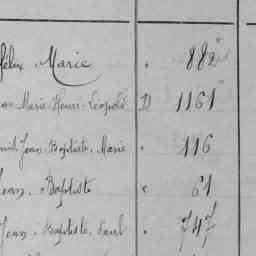 félix Marie " 882
Marie Henri Léopold D 1161
Jean Baptiste Marie " 116
Jean Baptiste " 61
Jean Baptiste Paul " 747